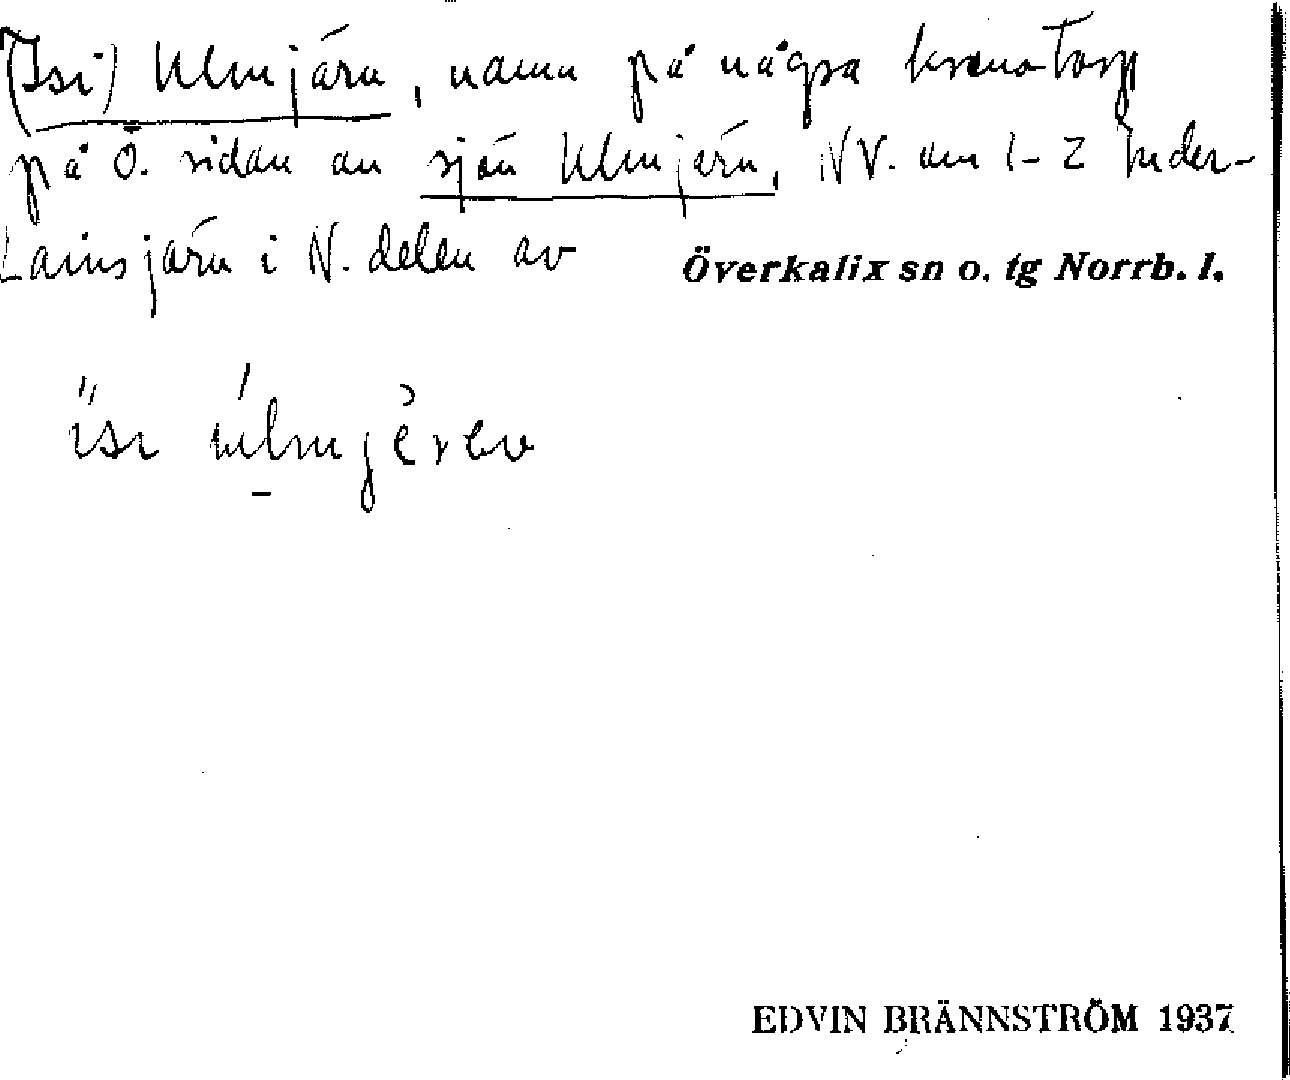 (Isi) Ulmjärv, namn på några kronotorp
på Ö. sidan av sjön Ulmjärv, NV. om 1-2 
Lainsjärv i N. delen av Överkalix sn o. tg Norrb. l.
EDVIN BRÄNNSTRÖM 1937